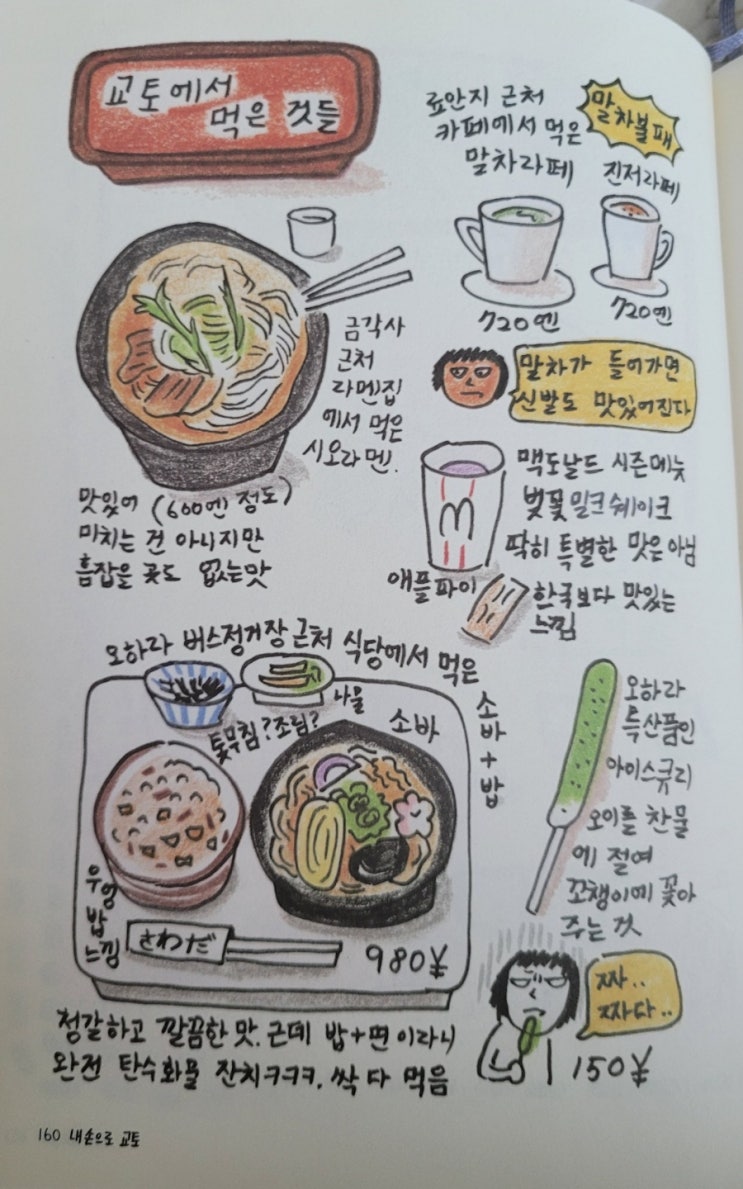 교토에서
먹은 것들
료안지 근처
카페에서 먹은
말차라떼
말차볼패
진저라떼
720엔
720엔
금각사
근처
라멘집
에서 먹은
시오라멘.
맛있어 (600엔 정도)
미치는 건 아니지만
흠잡을 곳도 없는맛
말차가 들어가면
신발도 맛있어진다
맥도날드 시즌메뉴
벚꽃밀크쉐이크
딱히 특별한 맛은 아님
애플파이
한국보다 맛있는
느낌
오하라 버스정거장 근처 식당에서 먹은
소바
+
밥
나물
톳무침? 조림?
소바
우엉
밥
느낌
さわだ
980¥
청갈하고 깔끔한 맛. 근데 밥+면 이라니
완전 탄수화물 잔치ㅋㅋㅋ. 싹 다 먹음
오하라
특산품인
아이스큐리
오이를 찬물
에 절여
꼬챙이에 꽂아
주는 것
짜..
짜다..
150¥
160 내 손으로 교토